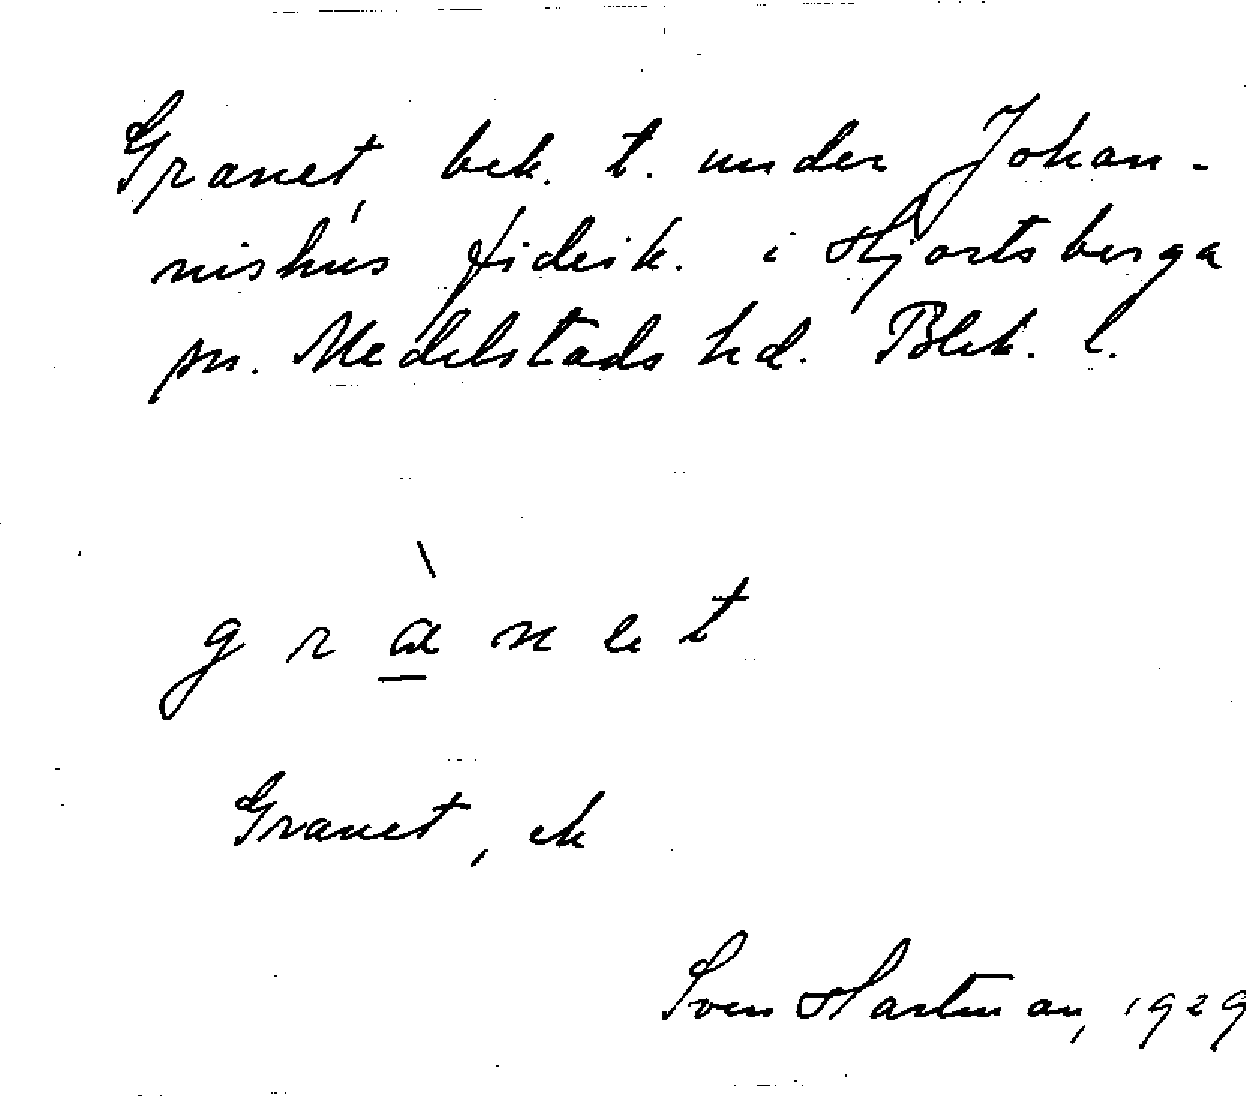 Granet, bek. t. under Johan-
nishus fideik. i Hjortsberga
sn. Medelstads hd. Blek. l.
g r à n e t
Granet, ek
Sven Hartman, 1929